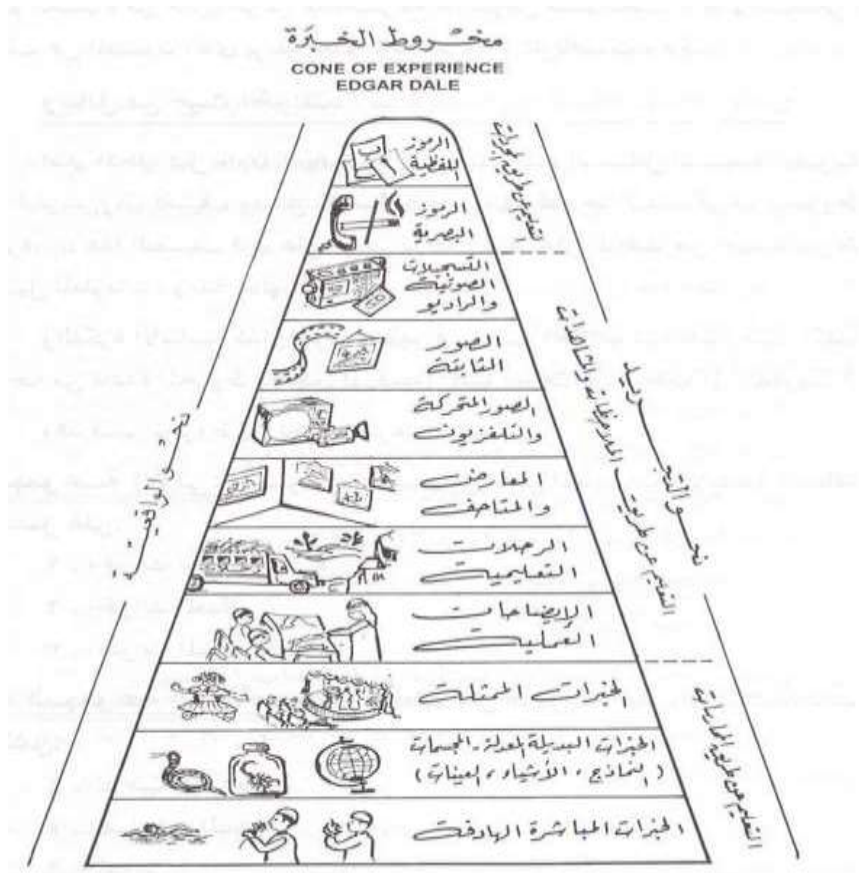 مخروط الخبرة
CONE OF EXPERIENCE
EDGAR DALE
الرموز
اللفظية
الرموز
البصرية
التسجيلات
الصوتية
والراديو
الصور
الثابتة
الصور المتحركة
والتلفزيون
المعارض
والمتاحف
الرحلات
التعليمية
الإيضاحات
العملية
الخبرات الممثلة
الخبرات البديلة المعدلة - المجسمات
(النماذج، الأشياء، العينات)
الخبرات المباشرة الهادفة
نحو الواقعية
نحو التجريد
التعليم عن طريق
التعليم عن طريق الملاحظات والمشاهدات
التعليم عن طريق الممارسات